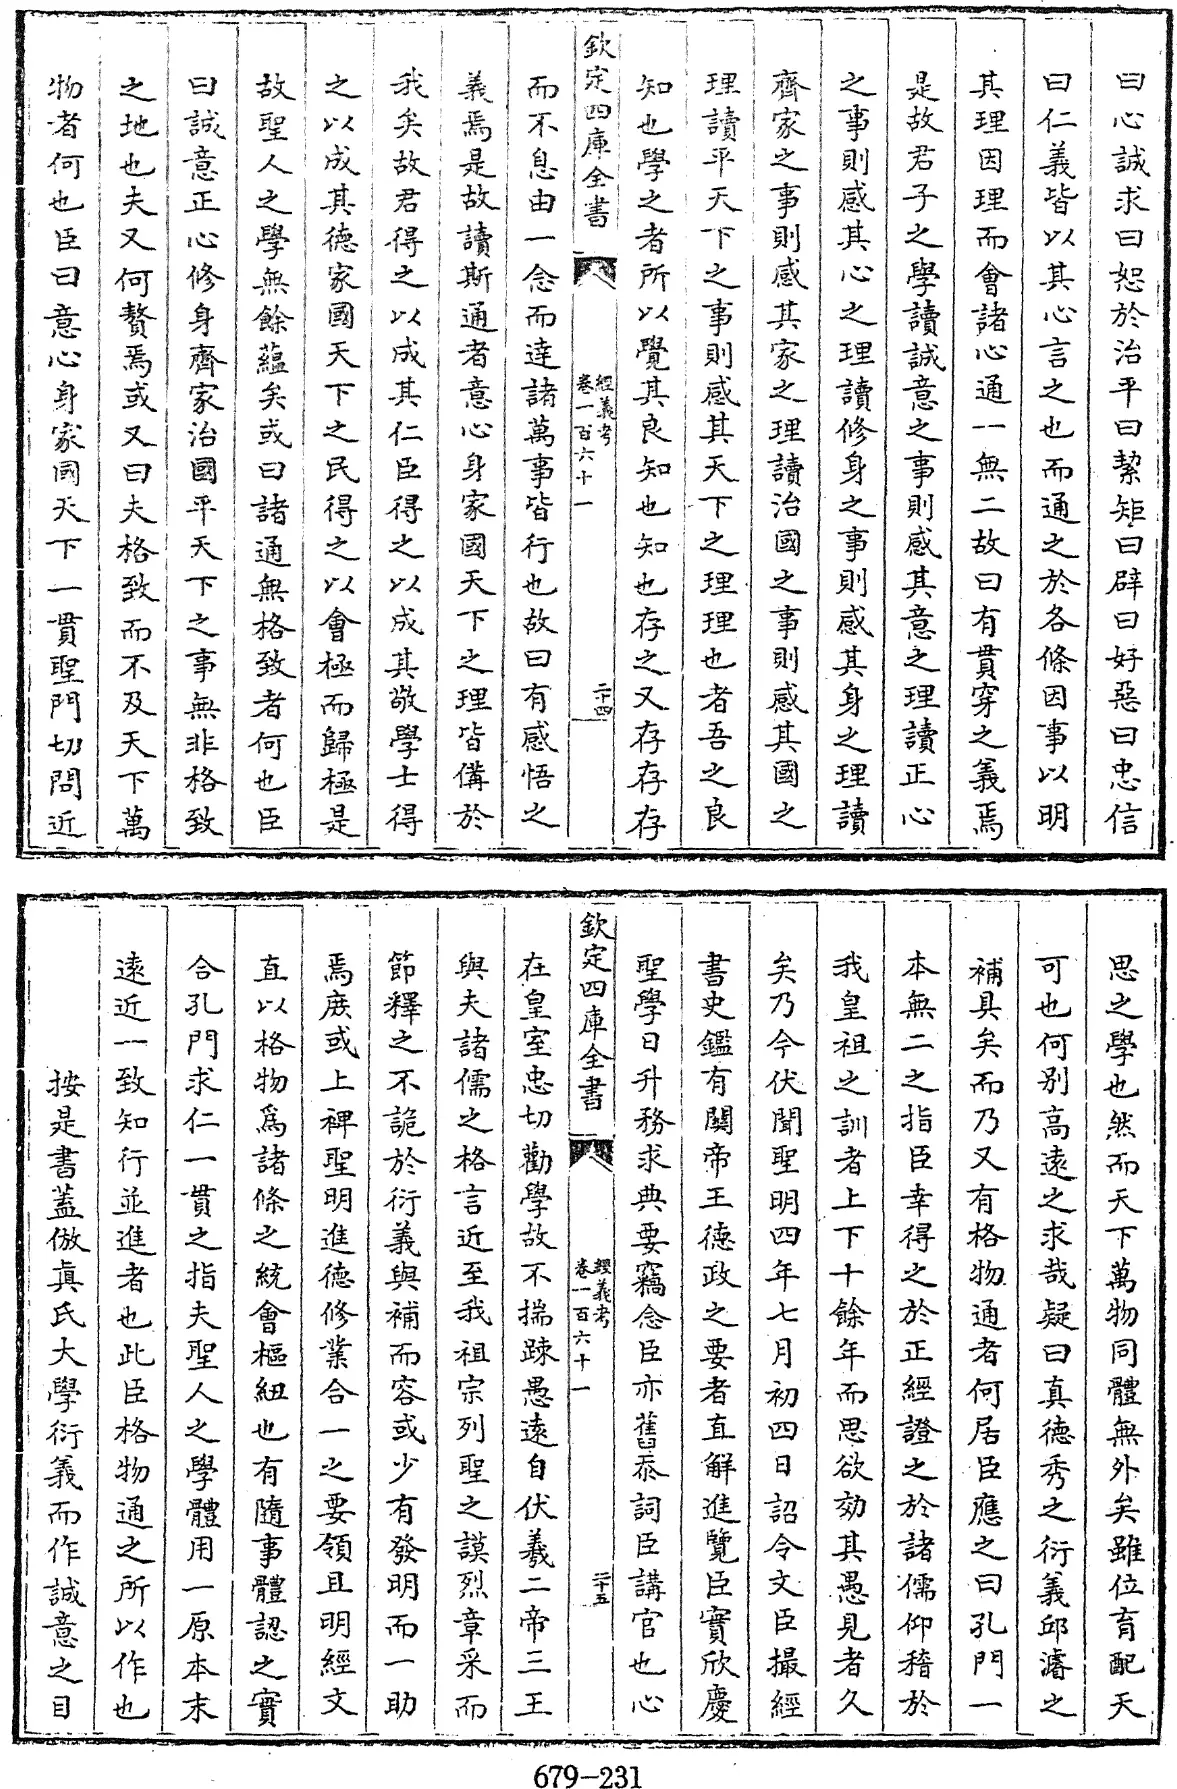 曰心誠求曰恕於治平曰絜矩曰辟曰好惡曰忠信
曰仁義皆以其心言之也而通之於各條因事以明
其理因理而會諸心通一無二故曰有貫穿之義焉
是故君子之學讀誠意之事則感其意之理讀正心
之事則感其心之理讀修身之事則感其身之理讀
齊家之事則感其家之理讀治國之事則感其國之
理讀平天下之事則感其天下之理理也者吾之良
知也學之者所以覺其良知也知也存之又存存存
欽定四庫全書
經義考
卷一百六十一
二十四
而不息由一念而達諸萬事皆行也故曰有感悟之
義焉是故讀斯通者意心身家國天下之理皆備於
我矣故君得之以成其仁臣得之以成其敬學士得
之以成其德家國天下之民得之以會極而歸極是
故聖人之學無餘蘊矣或曰諸通無格致者何也臣
曰誠意正心修身齊家治國平天下之事無非格致
之地也夫又何贅焉或又曰夫格致而不及天下萬
物者何也臣曰意心身家國天下一貫聖門切問近
思之學也然而天下萬物同體無外矣雖位育配天
可也何別高遠之求哉疑曰真德秀之衍義邱濬之
補具矣而乃又有格物通者何居臣應之曰孔門一
本無二之指臣幸得之於正經證之於諸儒仰稽於
我皇祖之訓者上下十餘年而思欲効其愚見者久
矣乃今伏聞聖明四年七月初四日詔令文臣撮經
書史鑑有關帝王德政之要者直解進覽臣實欣慶
聖學日升務求典要竊念臣亦舊忝詞臣講官也心
欽定四庫全書
經義考
卷一百六十一
二十五
在皇室忠切勸學故不揣疎愚遠自伏羲二帝三王
與夫諸儒之格言近至我祖宗列聖之謨烈章采而
節釋之不詭於衍義與補而容或少有發明而一助
焉庻或上裨聖明進德修業合一之要領且明經文
直以格物為諸條之統會樞紐也有隨事體認之實
合孔門求仁一貫之指夫聖人之學體用一原本末
遠近一致知行並進者也此臣格物通之所以作也
按是書蓋倣真氏大學衍義而作誠意之目
679-231